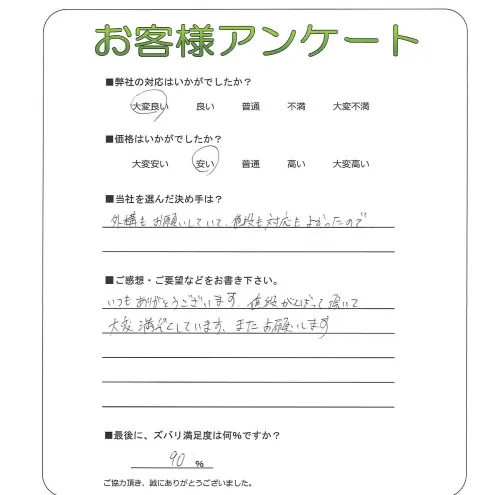 お客様アンケート
■弊社の対応はいかがでしたか？
大変良い 良い 普通 不満 大変不満
■価格はいかがでしたか？
大変安い 安い 普通 高い 大変高い
■当社を選んだ決め手は？
外構もお願いしていて、値段も対応もよかったので
■ご感想・ご要望などをお書き下さい。
いつもありがとうございます 値段がんばって頂いて
大変満ぞくしています、またお願いします
■最後に、ズバリ満足度は何％ですか？
90 ％
ご協力頂き、誠にありがとうございました。